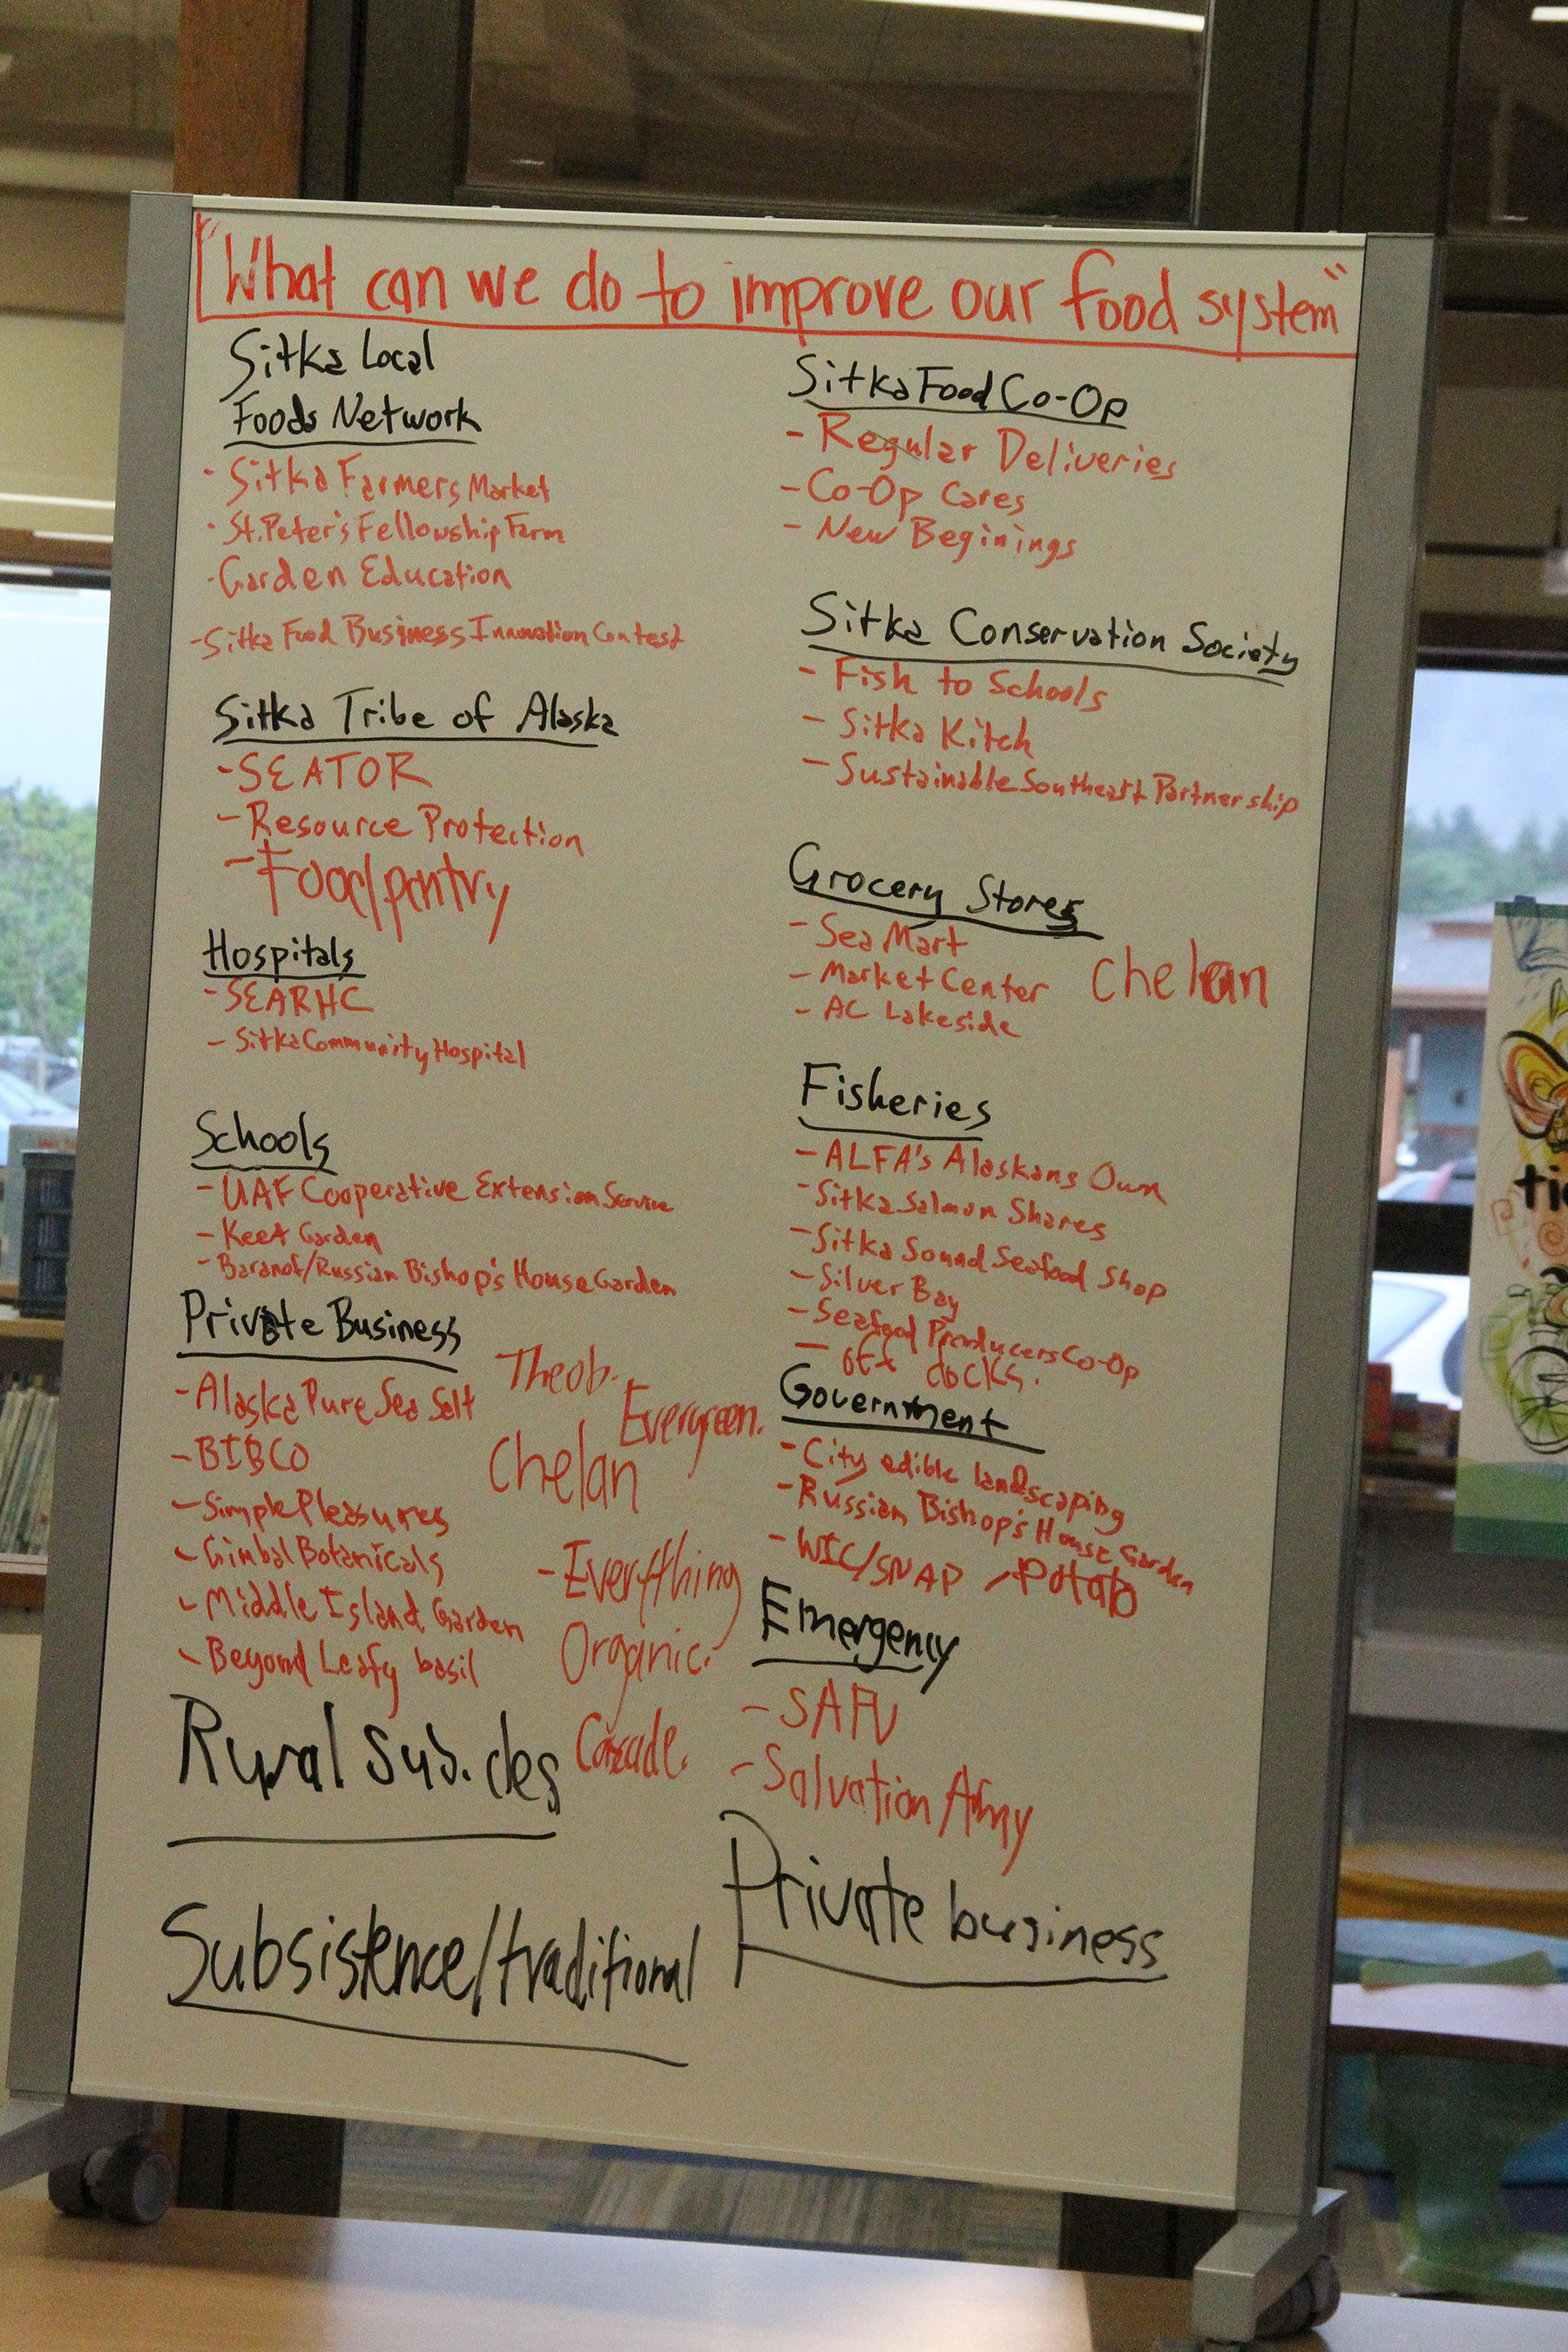 "What can we do to improve our food system"
Sitka Local
Foods Network
- Sitka Farmers Market
- St. Peter's Fellowship Farm
- Garden Education
- Sitka Food Business Innovation Contest
Sitka Tribe of Alaska
- SEATOR
- Resource Protection
- Food/pantry
Hospitals
- SEARHC
- Sitka Community Hospital
Schools
- UAF Cooperative Extension Service
- Keet Garden
- Baranof/Russian Bishop's House Garden
Private Business
- Alaska Pure Sea Salt
- BIBCO
- Simple Pleasures
- Gimbal Botanicals
- Middle Island Garden
- Beyond Leafy basil
Theob.
Evergreen.
Chelan
- Everything
Organic.
Cascade.
Rural sub. des
Subsistence/traditional
Sitka Food Co-Op
- Regular Deliveries
- Co-Op Cares
- New Beginings
Sitka Conservation Society
- Fish to Schools
- Sitka Kitch
- Sustainable Southeast Partnership
Grocery Stores
- Sea Mart
- Market Center
- AC Lakeside
Chelan
Fisheries
- ALFA's Alaskans Own
- Sitka Salmon Shares
- Sitka Sound Seafood Shop
- Silver Bay
- Seafood Producers Co-Op
- off docks.
Government
- City edible landscaping
- Russian Bishop's House Garden
- WIC/SNAP - Potato
Emergency
- SAFV
- Salvation Army
Private business
ti